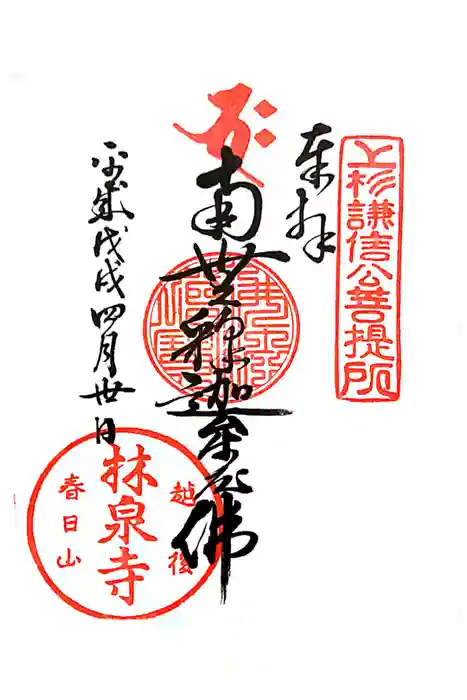 上杉謙信公菩提所
奉拝
南無釋迦牟尼佛
平成戊戌四月卅日
越後
林泉寺
春日山